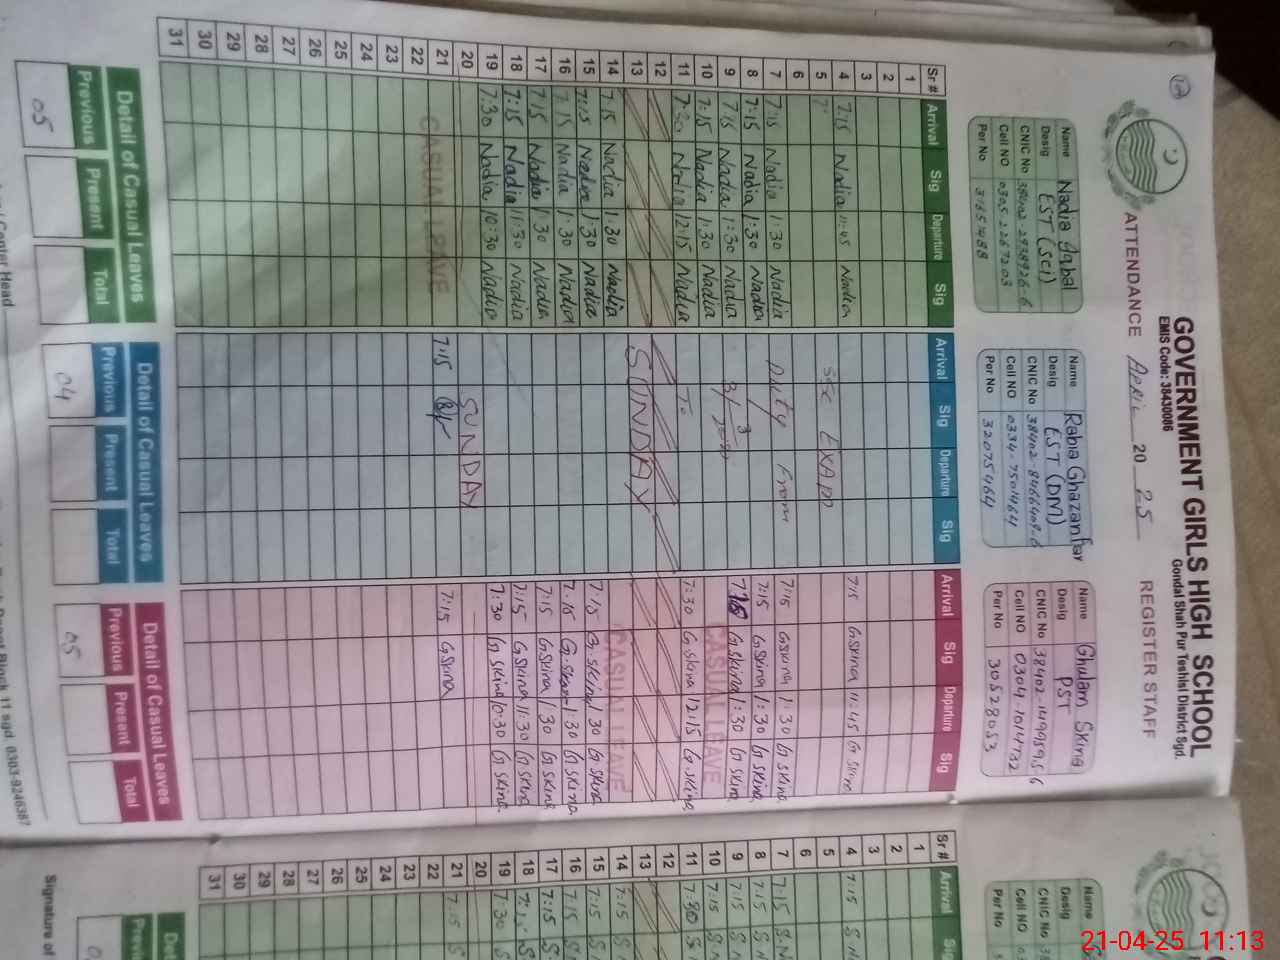 GOVERNMENT GIRLS HIGH SCHOOL
Gondal Shah Pur Teshlal District Sgd.
EMIS Code: 38430086
ATTENDANCE April 2025 REGISTER STAFF
Name Nadia Iqbal
Desig EST (Sci)
CNIC No
Cell NO 0305-2267203
Per No 31651488
Name Raba Ghazanfar
Desig EST (DM)
CNIC No 38402-8466409-6
Cell NO 0334-7501464
Per No 32075464
Name Ghulam Skina
Desig PST
CNIC No
Cell NO 0304-1014732
Per No 30528053
Sr # Arrival Sig Departure Sig Arrival Sig Departure Sig Arrival Sig Departure Sig
1
2
3
4 7:15 Nadia 11:45 Nadia 7:15 G.Skina 11:45 G.Skina
5 SSC EXAM
6
7 7:15 Nadia 1:30 Nadia Duty From 7:15 G.Skina 1:30 G.Skina
8 7:15 Nadia 1:30 Nadia 7:15 G.Skina 1:30 G.Skina
9 7:15 Nadia 1:30 Nadia G.Skina 1:30 G.Skina
10 7:15 Nadia 1:30 Nadia CASUAL LEAVE
11 7:30 Nadia 12:15 Nadia To 7:30 G.Skina 12:15 G.Skina
12
13 SUNDAY
14 7:15 Nadia 1:30 Nadia CASUAL LEAVE
15 7:15 Nadia 1:30 Nadia 7:15 G.Skina 1:30 G.Skina
16 7:15 Nadia 1:30 Nadia 7:15 G.Skina 1:30 G.Skina
17 7:15 Nadia 1:30 Nadia 7:15 G.Skina 1:30 G.Skina
18 7:15 Nadia 11:30 Nadia 7:15 G.Skina 11:30 G.Skina
19 7:30 Nadia 10:30 Nadia 7:30 G.Skina 10:30 G.Skina
20 SUNDAY
21 CASUAL LEAVE 7:15 7:15 G.Skina
22
23
24
25
26
27
28
29
30
31
Detail of Casual Leaves Detail of Casual Leaves Detail of Casual Leaves
Previous Present Total Previous Present Total Previous Present Total
05 04 05
11 sgd. 0303-9246387
Name
Desig
CNIC No
Cell NO
Per No
Sr # Arrival
1
2
3
4 7:15
5
6
7 7:15
8 7:15
9 7:15
10 7:15
11 7:30
12
13
14 7:15
15 7:15
16 7:15
17 7:15
18 7:15
19 7:30
20
21 7:15
22
23
24
25
26
27
28
29
30
31
Signature of
21-04-25 11:13